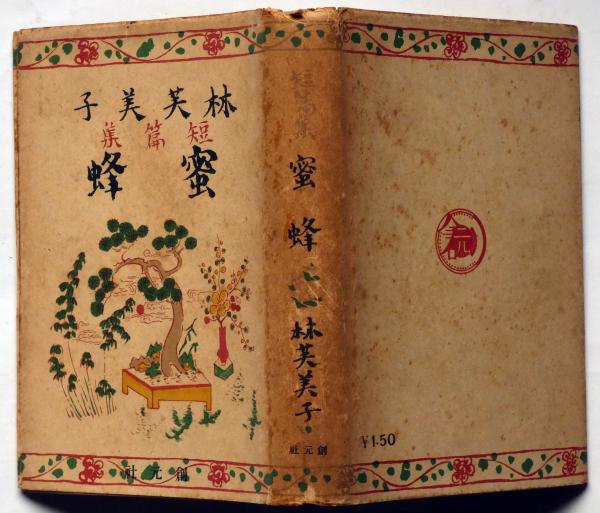 林芙美子
短篇集
蜜蜂
創元社
短篇集
蜜蜂
林芙美子
創元社
¥1.50